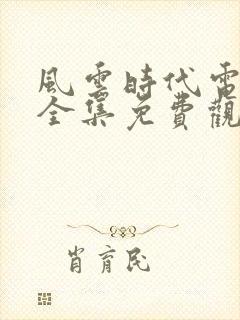 風雲時代電
全集免費觀
肖育民